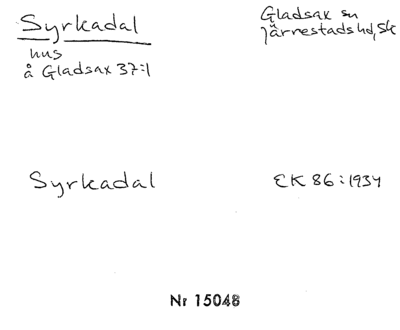 Syrkadal
Gladsax sn
Järrestads hd, Sk
hus
å Gladsax 37:1
Syrkadal
EK 86:1934
Nr 15048